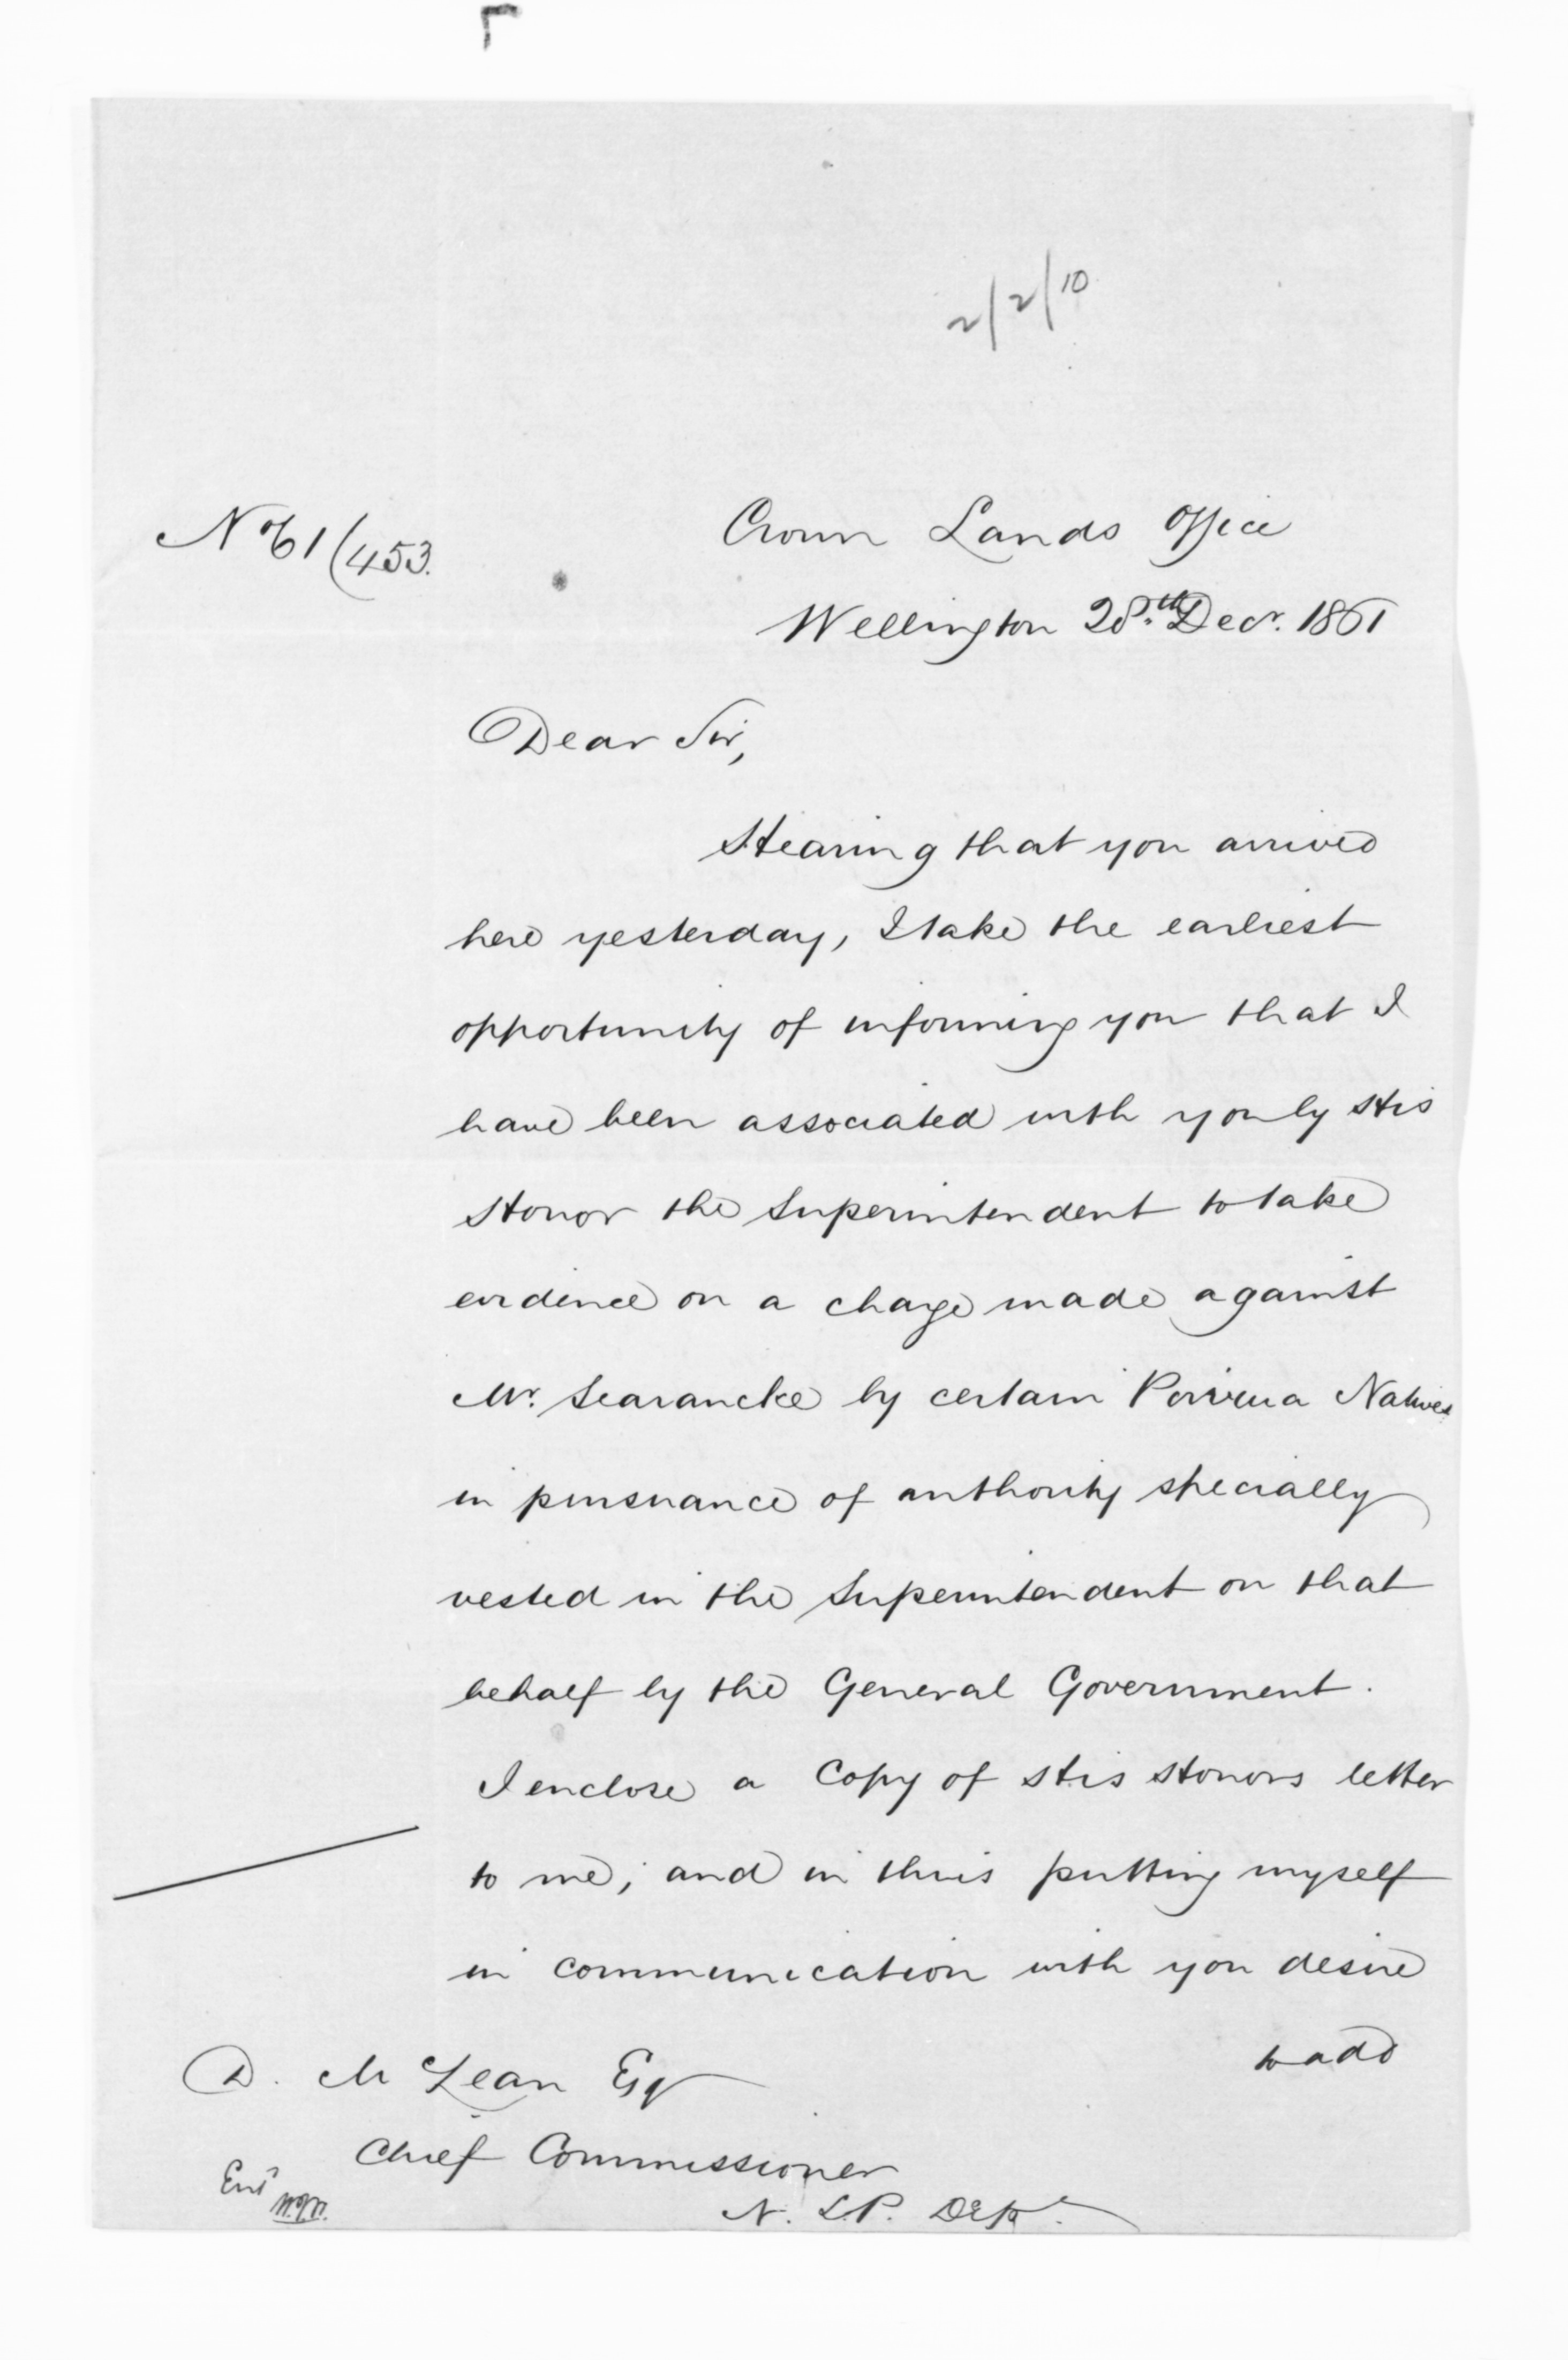 2/2/10
No 61/453.
Crown Lands Office
Wellington 28th Decr. 1861
Dear Sir,
Hearing that you arrived
here yesterday, I take the earliest
opportunity of informing you that I
have been associated with you by His
Honor the Superintendent to take
evidence on a charge made against
Mr. Searancke by certain Porirua Natives
in pursuance of authority specially
vested in the Superintendent on that
behalf by the General Government.
I enclose a Copy of His Honors letter
to me; and in thus putting myself
in communication with you desire
to add
D. McLean Esq
Chief Commissioner
N. L.P. Dept.